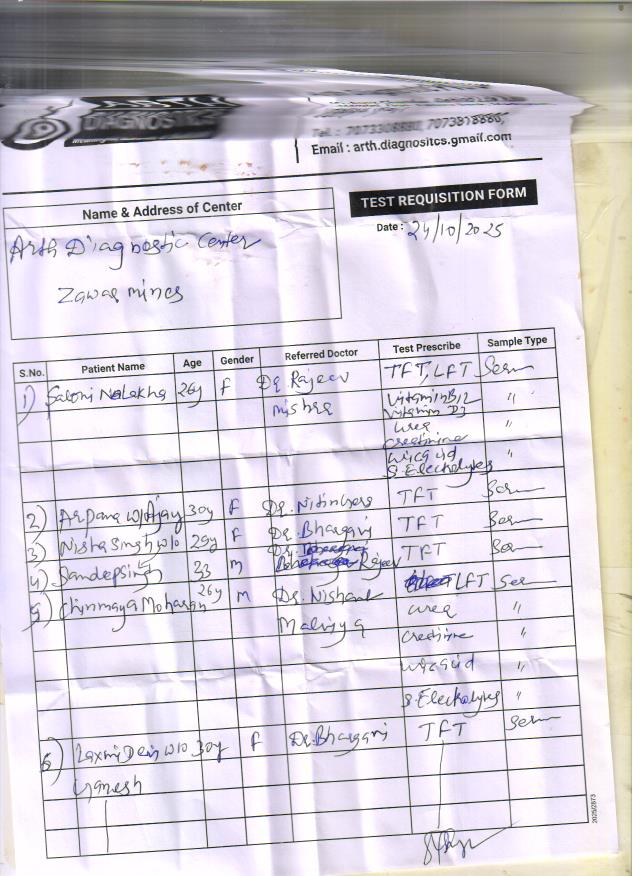 ARTH
DIAGNOSTICS
Tel.: 7073308880, 7073818880,
Email : arth.diagnositcs.gmail.com
TEST REQUISITION FORM
Name & Address of Center
Date : 24/10/2025
Arth Diagnostic Center
Zawar mines
S.No. Patient Name Age Gender Referred Doctor Test Prescribe Sample Type
1) Saloni Nalakha 26y F Dr. Rajeev TFT, LFT Serum
mishra Vitamin B12 "
Vitamin D3
urea "
creatinine
uric acid "
S. Electrolytes
2) Arpana W/o Ajay 30y F Dr. Nitin TFT Serum
3) Nisha Singh w/o 29y F Dr. Bhargavi TFT Serum
4) Sandeep Singh 23 m Dr. Rajeev TFT Serum
5) Chinmaya Moharan 26y m Dr. Nishant LFT Serum
Malviya urea "
creatinine "
uric acid "
S. Electrolytes "
6) Laxmi Devi w/o 30y F Dr. Bhargavi TFT Serum
Ganesh
2025/2873